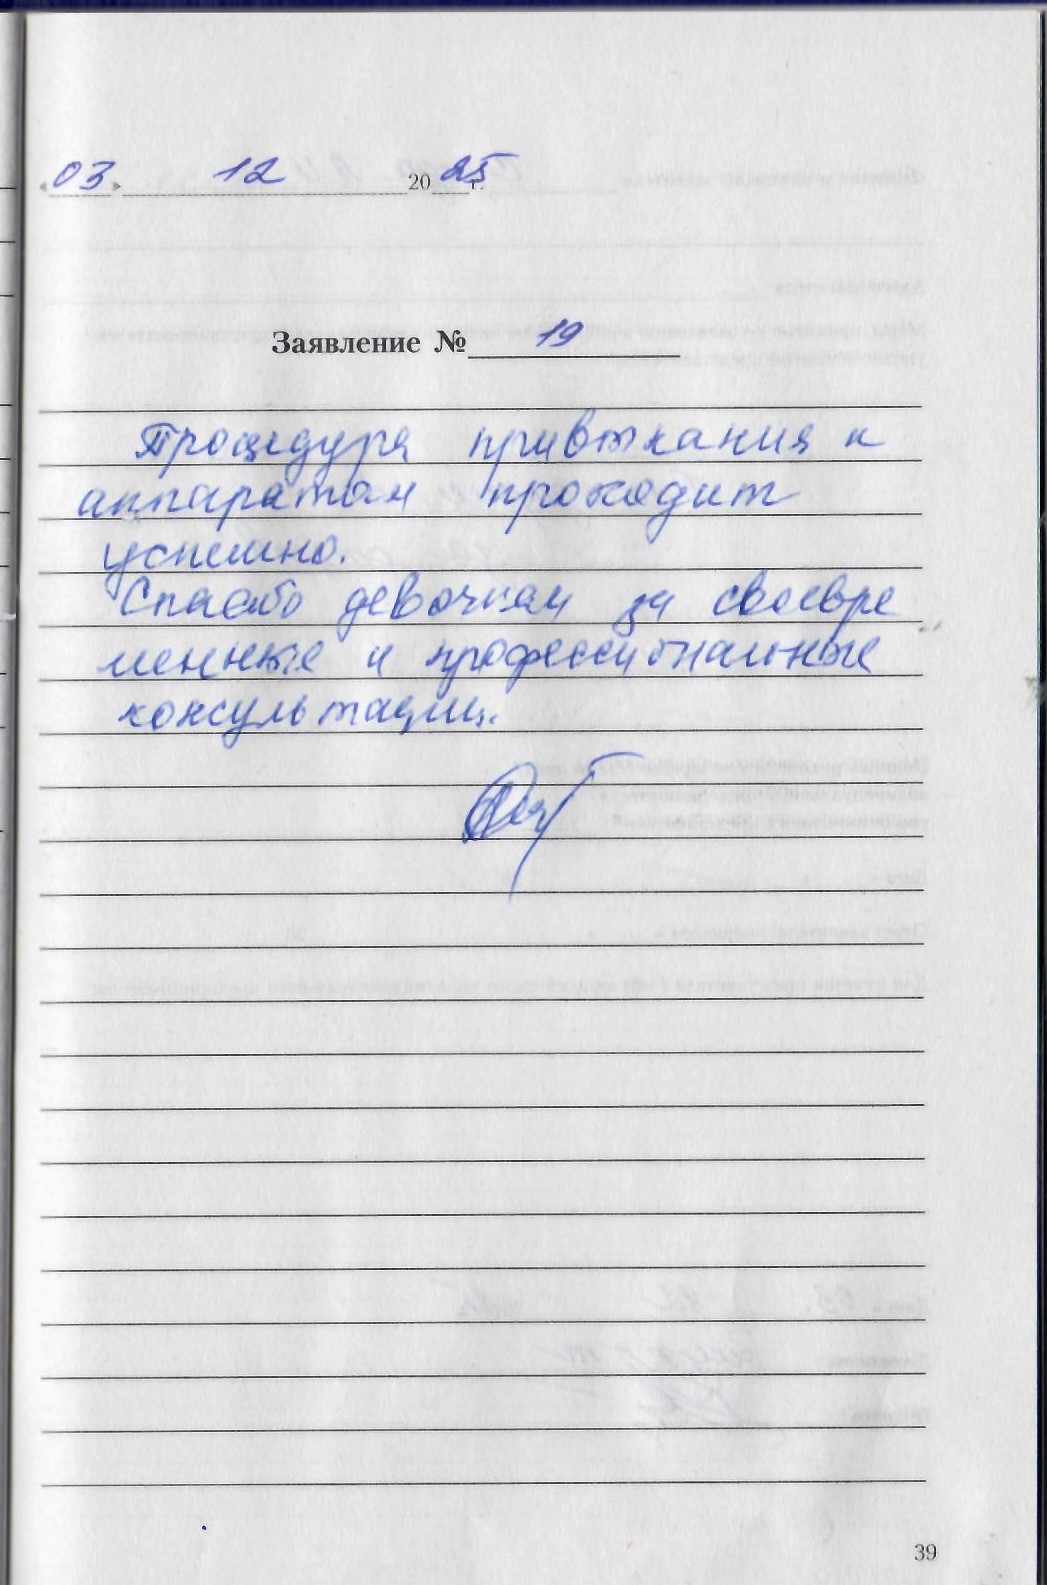 «03» 12 2025 г.
Заявление № 19
Процедура привыкания к
аппаратам проходит
успешно.
Спасибо девочкам за своевре
менные и профессиональные
консультации.
39